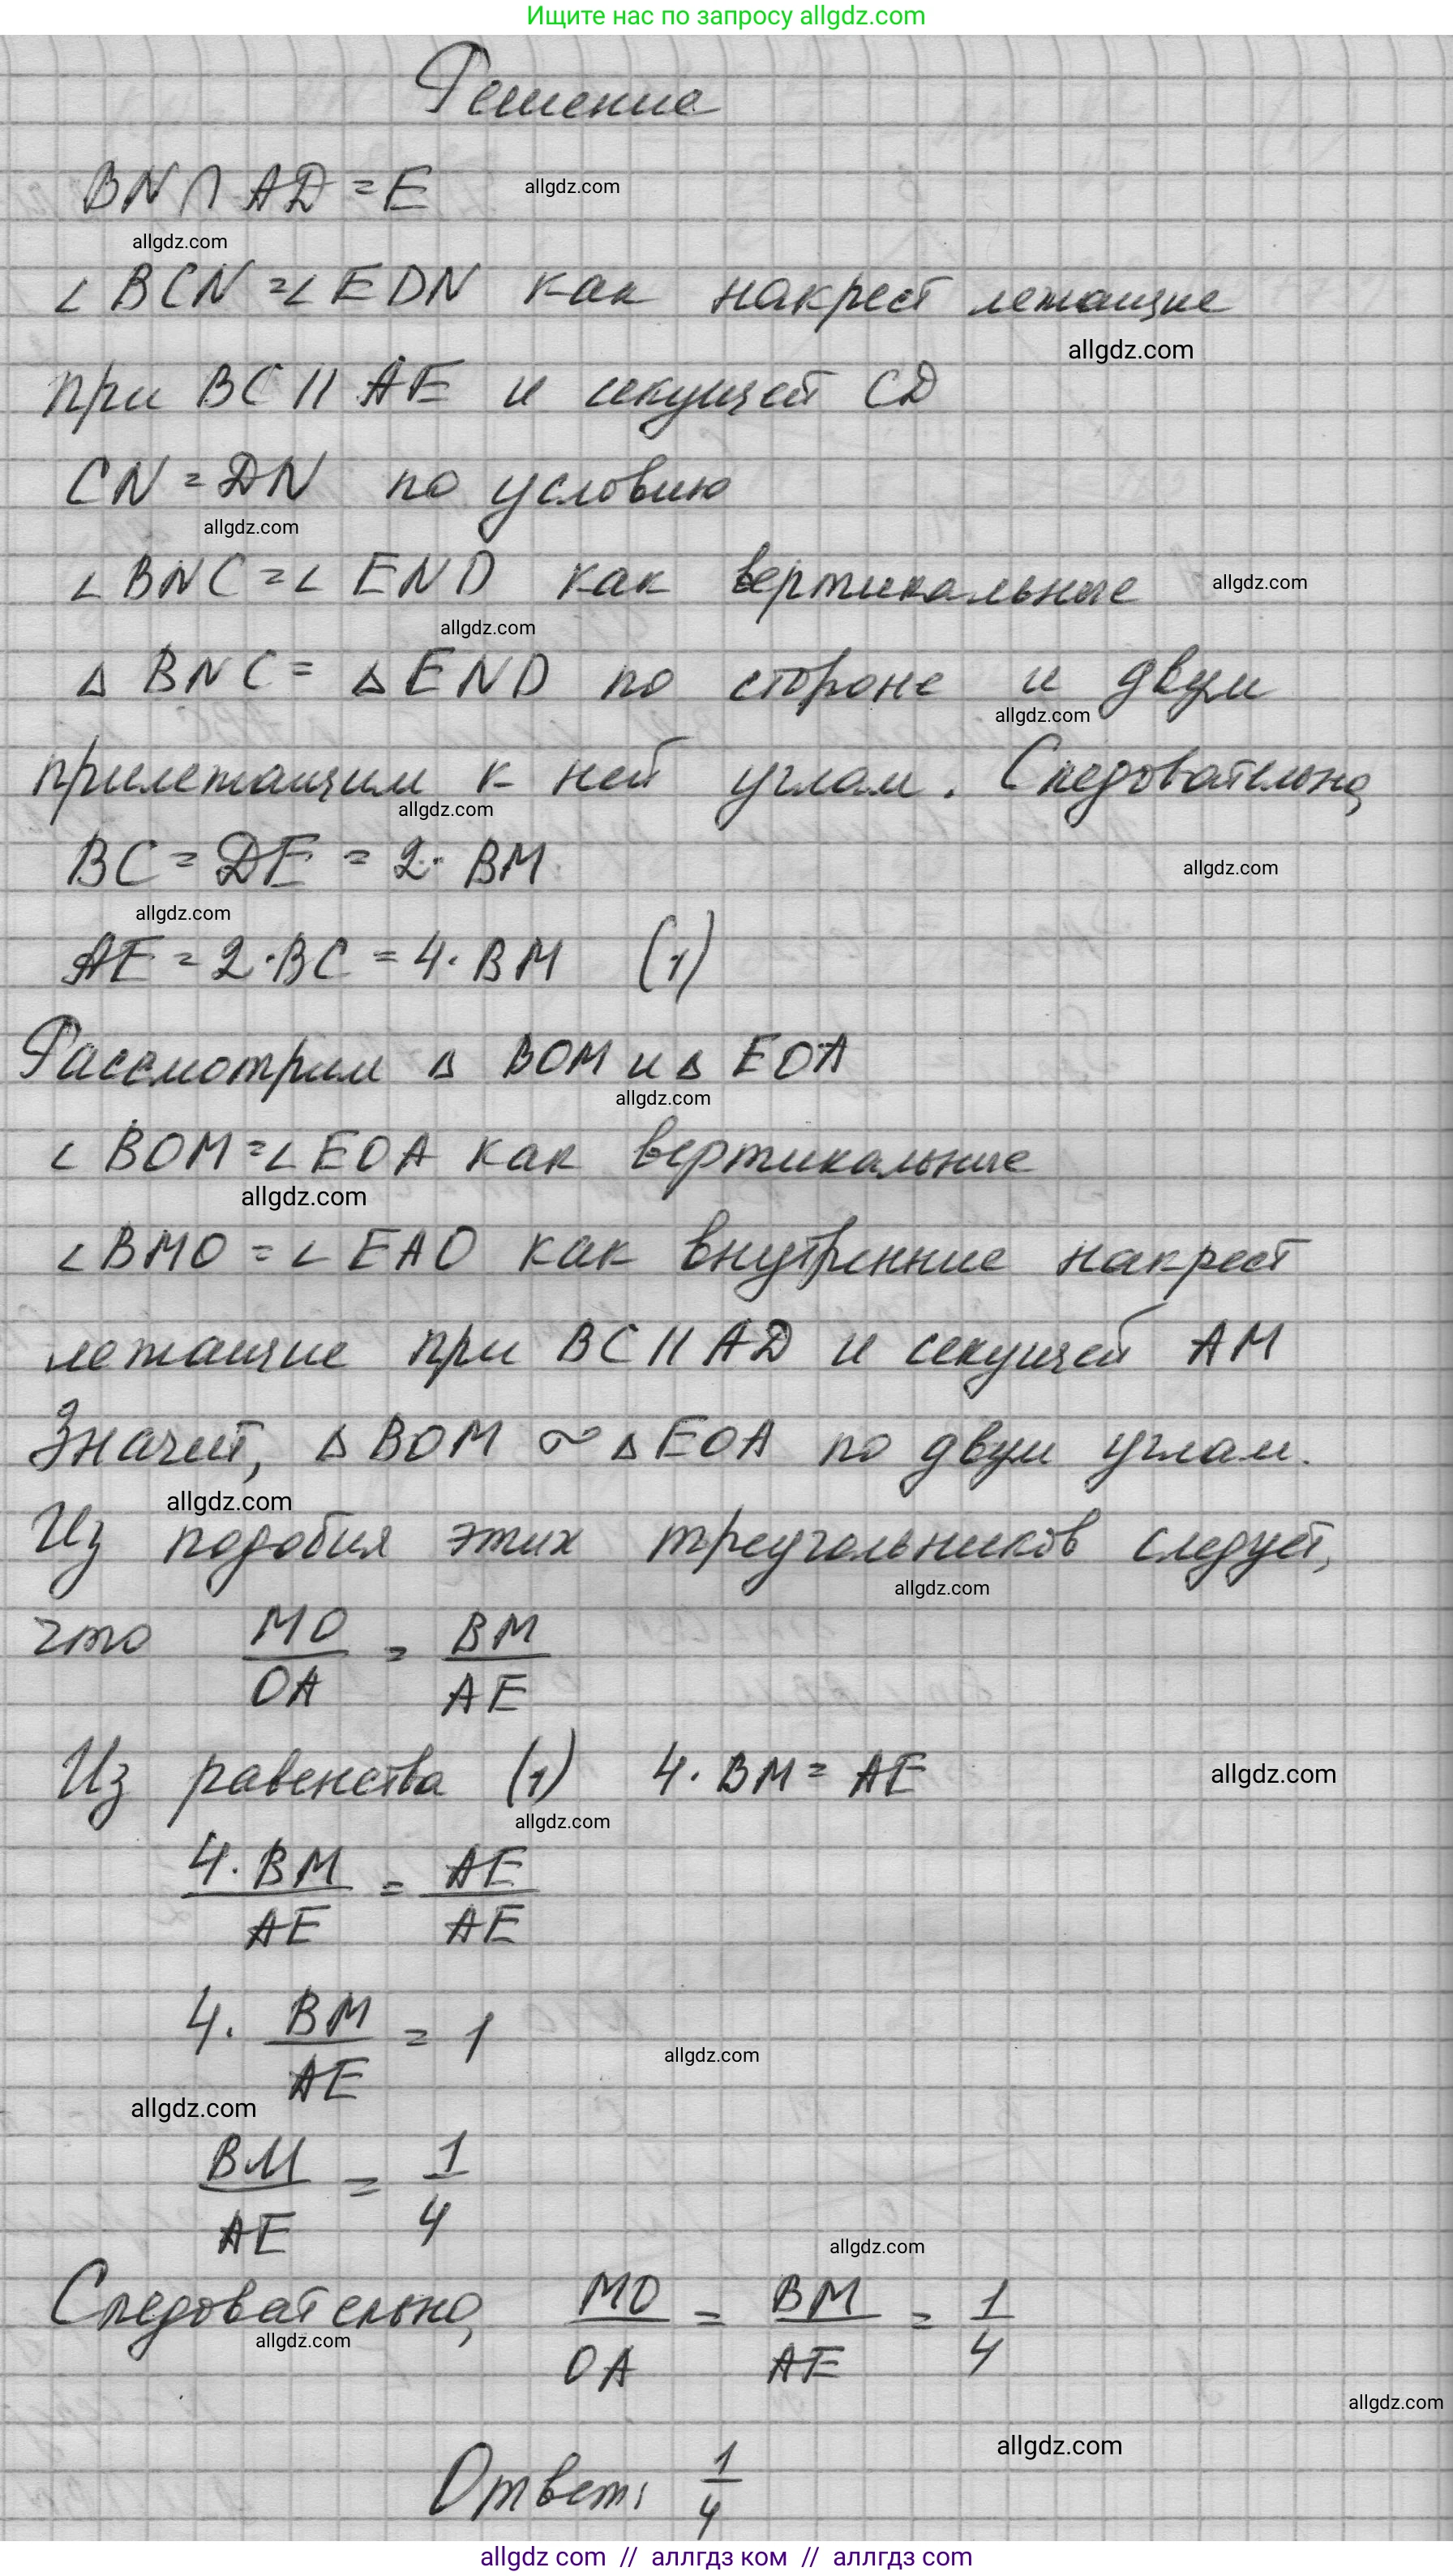 Ищите нас по запросу allgdz.com
Решение
BN ∩ AD = E
allgdz.com
allgdz.com
∠ BCN = ∠ EDN как накрест лежащие
allgdz.com
при BC || AE и секущей CD
CN = DN по условию
allgdz.com
∠ BNC = ∠ END как вертикальные
allgdz.com
allgdz.com
Δ BNC = Δ END по стороне и двум
allgdz.com
прилежащим к ней углам. Следовательно,
allgdz.com
BC = DE = 2 · BM
allgdz.com
allgdz.com
AE = 2 · BC = 4 · BM (1)
Рассмотрим Δ BOM и Δ EOA
allgdz.com
∠ BOM = ∠ EOA как вертикальные
allgdz.com
∠ BMO = ∠ EAO как внутренние накрест
лежащие при BC || AD и секущей AM
Значит, Δ BOM ∾ Δ EOA по двум углам.
allgdz.com
Из подобия этих треугольников следует,
allgdz.com
что MO/OA = BM/AE
Из равенства (1) 4 · BM = AE
allgdz.com
allgdz.com
4 · BM/AE = AE/AE
4 · BM/AE = 1
allgdz.com
allgdz.com
BM/AE = 1/4
allgdz.com
Следовательно, MO/OA = BM/AE = 1/4
allgdz.com
allgdz.com
allgdz.com
Ответ: 1/4
allgdz com // аллгдз ком // аллгдз com